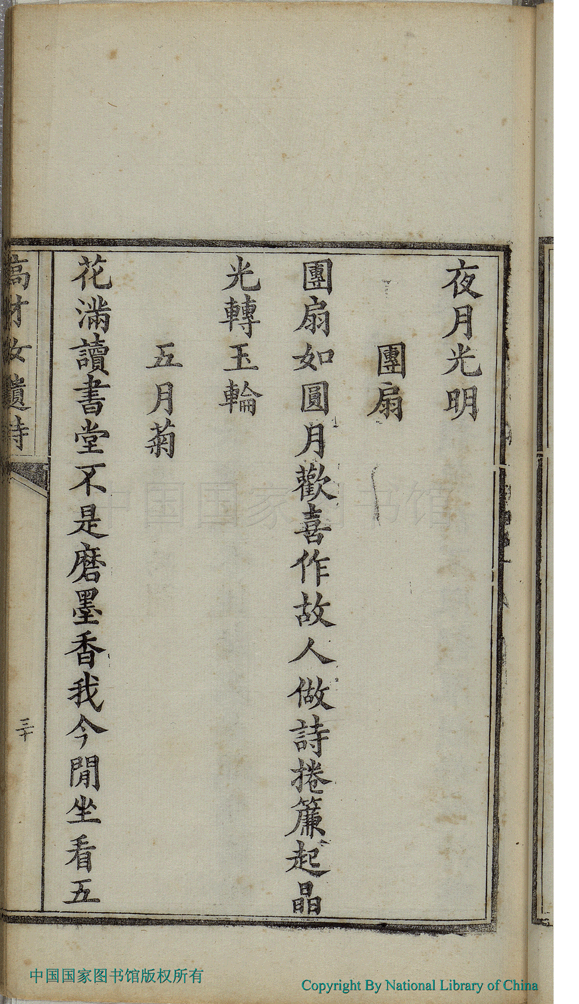 夜月光明
團扇
團扇如圓月歡喜作故人做詩捲簾起晶
光轉玉輪
五月菊
花滿讀書堂不是磨墨香我今閒坐看五
高才女遺詩
三十
中国国家图书馆
中国国家图书馆版权所有
Copyright By National Library of China